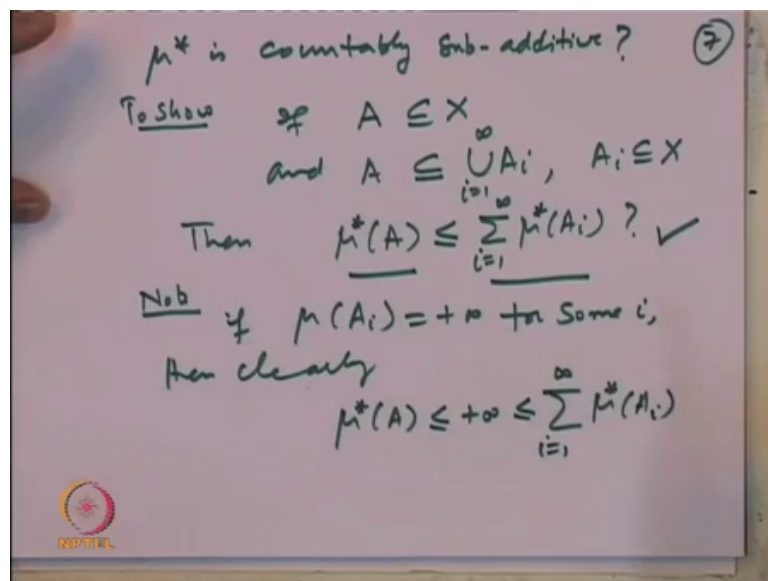 μ* is countably sub-additive? ⑦
To show if A ⊆ X
and A ⊆ ⋃_{i=1}^{∞} A_i, A_i ⊆ X
Then μ*(A) ≤ ∑_{i=1}^{∞} μ*(A_i) ? ✓
Nob if μ(A_i) = +∞ for some i,
then clearly
μ*(A) ≤ +∞ ≤ ∑_{i=1}^{∞} μ*(A_i)
NPTEL